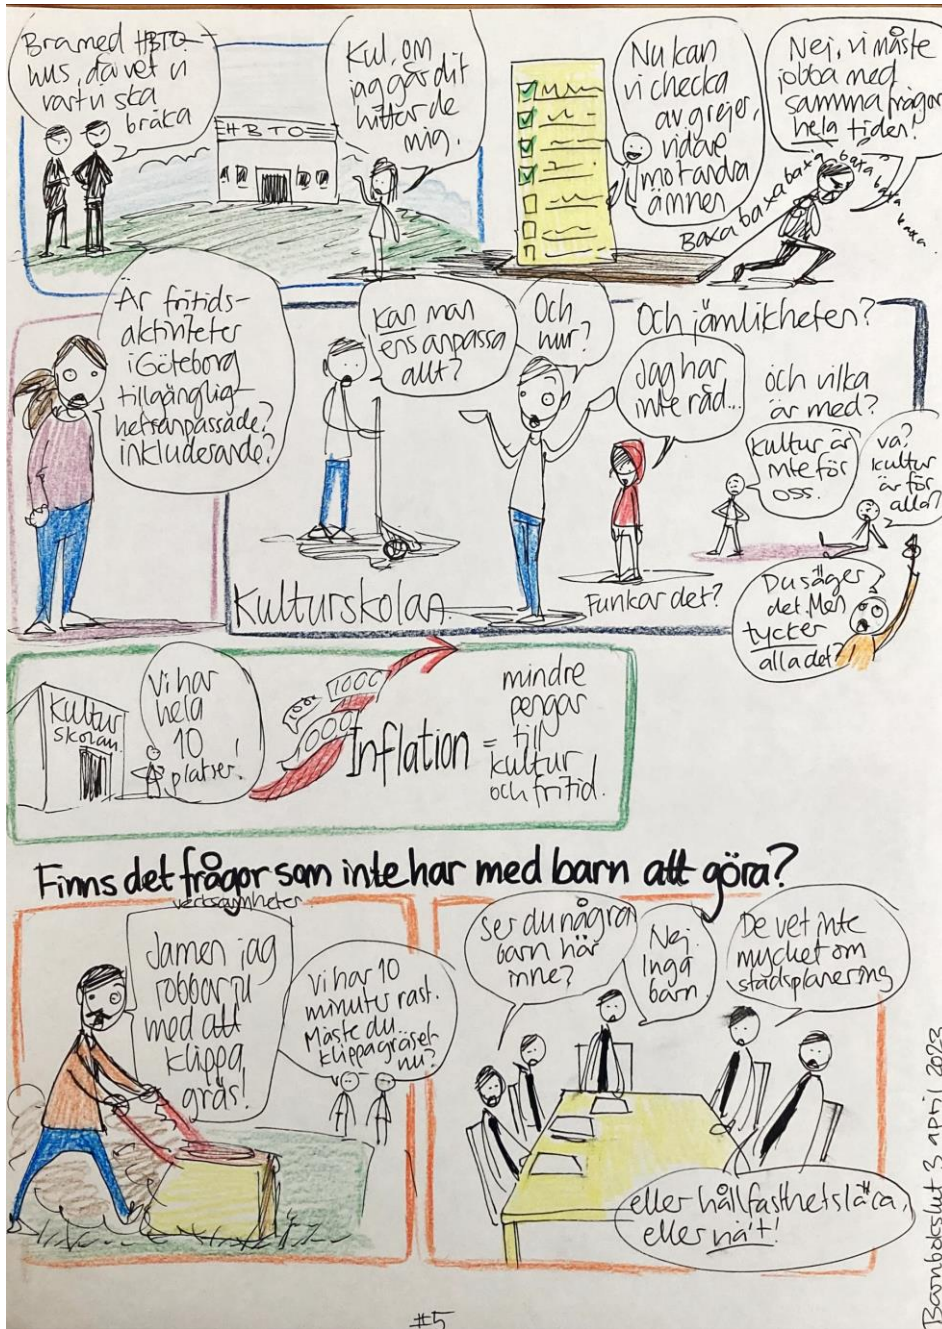 Bra med HBTQ-
hus, då vet vi
vart vi ska
bråka
HBTQ
Kul, om
jag går dit
hittar de
mig.
Nu kan
vi checka
av grejer,
vidare
mot andra
ämnen
Nej, vi måste
jobba med
samma frågor
hela tiden!
Baxa baxa baxa baxa baxa baxa
Är fritids-
aktiviteter
i Göteborg
tillgänglig-
hetsanpassade?
inkluderande?
Kan man
ens anpassa
allt?
Och
hur?
Och jämlikheten?
Jag har
inte råd...
och vilka
är med?
Kultur är
inte för
oss.
va?
Kultur
är för
alla?
Kulturskolan.
Funkar det?
Du säger
det. Men
tycker
alla det?
Kultur
skolan.
Vi har
hela
10
platser!
1000
1000
1000
Inflation =
mindre
pengar
till
kultur
och fritid.
Finns det frågor som inte har med barn att göra?
verksamheter
Jamen jag
jobbar ju
med att
klippa
gräs!
Vi har 10
minuter rast.
Måste du
klippa gräset
nu?
Ser du några
barn här
inne?
Nej.
Inga
barn
De vet inte
mycket om
stadsplanering
eller hållfasthetslära,
eller nåt!
Barnbokslut 3 april 2023
#5